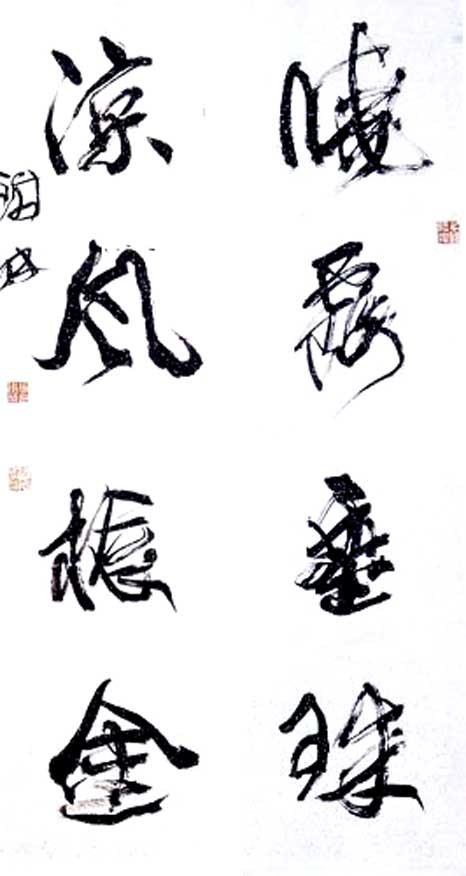 曉露垂珠
涼風振金